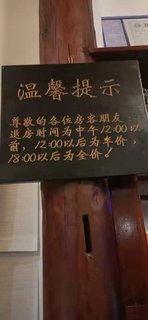 温馨提示
尊敬的各位房客朋友:
退房时间为中午12:00以
前,12:00以后为半价,
18:00以后为全价!